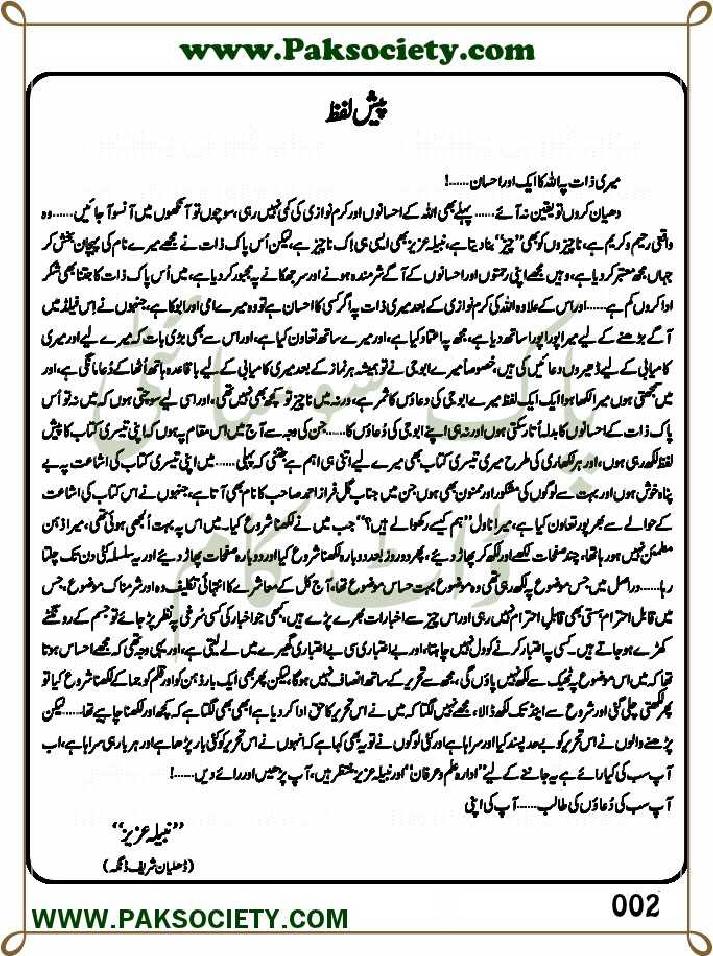 www.Paksociety.com
پیش لفظ
میری ذات پہ اللہ کا ایک اور احسان......!
دھیان کروں تو یقین نہ آئے...... پہلے بھی اللہ کے احسانوں اور کرم نوازی کی کمی نہیں رہی، سوچوں تو آنکھوں میں آنسو آ جائیں......وہ
واقعی رحیم و کریم ہے، ناچیزوں کو بھی ”چیز“ بنا دیتا ہے، نبیلہ عزیز بھی ایسی ہی اِک ناچیز ہے، لیکن اُس پاک ذات نے مجھے میرے نام کی پہچان بخش کر
جہاں مجھ معتبر کر دیا ہے، وہیں مجھے اپنی رحمتوں اور احسانوں کے آگے شرمندہ ہونے اور سر جھکانے پہ مجبور کر دیا ہے، میں اُس پاک ذات کا جتنا بھی شکر
ادا کروں کم ہے......اور اس کے علاوہ اللہ کی کرم نوازی کے بعد میری ذات پہ اگر کسی کا احسان ہے تو وہ میرے امی اور ابو کا ہے، جنہوں نے اِس فیلڈ میں
آگے بڑھنے کے لیے میرا پورا پورا ساتھ دیا ہے، مجھ پہ اعتماد کیا ہے، اور میرے ساتھ تعاون کیا ہے، اور اس سے بھی بڑی بات کہ میرے لیے اور میری
کامیابی کے لیے ڈھیروں دعائیں کی ہیں، خصوصاً میرے ابو جی نے تو ہمیشہ ہر نماز کے بعد میری کامیابی کے لیے باقاعدہ ہاتھ اُٹھا کے دُعا مانگی ہے، اور
میں سمجھتی ہوں میرا لکھا ہوا ایک ایک لفظ میرے ابو جی کی دعاؤں کا ثمر ہے، ورنہ میں ناچیز تو کچھ بھی نہیں تھی، اور اسی لیے سوچتی ہوں کہ میں نہ تو اُس
پاک ذات کے احسانوں کا بدلہ اُتار سکتی ہوں اور نہ ہی اپنے ابو جی کی دُعاؤں کا......جن کی وجہ سے آج میں اس مقام پہ ہوں کہ اپنی تیسری کتاب کا پیش
لفظ لکھ رہی ہوں، اور ہر لکھاری کی طرح میری تیسری کتاب بھی میرے لیے اتنی ہی اہم ہے جتنی کہ پہلی......میں اپنی تیسری کتاب کی اشاعت پہ بے
پناہ خوش ہوں اور بہت سے لوگوں کی مشکور اور ممنون بھی ہوں جن میں جناب گل فراز احمد صاحب کا نام بھی آتا ہے، جنہوں نے اس کتاب کی اشاعت
کے حوالے سے بھرپور تعاون کیا ہے، میرا ناول ”ہم کیسے رکھوالے ہیں؟“ جب میں نے لکھنا شروع کیا۔ میں اس پہ بہت اُلجھی ہوئی تھی، میرا ذہن
مطمئن نہیں ہو رہا تھا، چند صفحات لکھے اور لکھ کر پھاڑ دیئے، پھر دو روز بعد دوبارہ لکھنا شروع کیا اور دوبارہ صفحات پھاڑ دیئے اور یہ سلسلہ کئی دن تک چلتا
رہا......دراصل میں جس موضوع پہ لکھ رہی تھی وہ موضوع بہت حساس موضوع تھا، آج کل کے معاشرے کا انتہائی تکلیف دہ اور شرمناک موضوع، جس
میں قابل احترام ہستی بھی قابلِ احترام نہیں رہی اور اس چیز سے اخبارات بھرے پڑے ہیں، کبھی جو اخبار کی کسی سُرخی پہ نظر پڑ جائے تو جسم کے رونگٹے
کھڑے ہو جاتے ہیں۔ کسی پہ اعتبار کرنے کو دل نہیں چاہتا، اور بے اعتباری سی بے اعتباری گھیرے میں لے لیتی ہے، اور یہی وجہ تھی کہ مجھے احساس ہوتا
تھا کہ میں اس موضوع پہ ٹھیک سے لکھ نہیں پاؤں گی، مجھ سے تحریر کے ساتھ انصاف نہیں ہوگا، لیکن پھر بھی ایک بار ذہن کو اور قلم کو جما کے لکھنا شروع کیا تو
پھر لکھتی چلی گئی اور شروع سے اینڈ تک لکھ ڈالا، مجھے نہیں لگتا کہ میں نے اس تحریر کا حق ادا کر دیا ہے ابھی بھی لگتا ہے کہ کچھ اور لکھنا چاہیے تھا......لیکن
پڑھنے والوں نے اس تحریر کو بے حد پسند کیا اور سراہا ہے اور کئی لوگوں نے تو یہ بھی کہا ہے کہ انہوں نے اس تحریر کو کئی بار پڑھا ہے اور ہر بار ہی سراہا ہے، اب
آپ سب کی کیا رائے ہے یہ جاننے کے لیے ”ادارہ علم و عرفان“ اور نبیلہ عزیز منتظر ہیں، آپ پڑھیں اور رائے دیں......!
آپ سب کی دُعاؤں کی طالب......آپ کی اپنی
”نبیلہ عزیز“
(ڈھلیان شریف ڈنگہ)
پاک سوسائٹی
ڈاٹ کام
WWW.PAKSOCIETY.COM
002